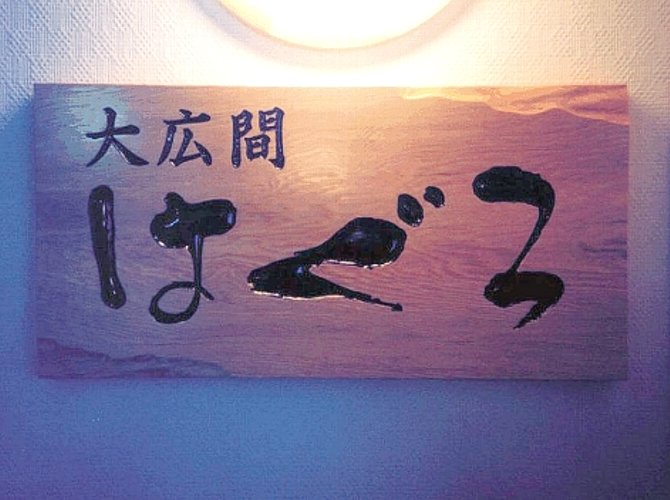 大広間
はぐろ